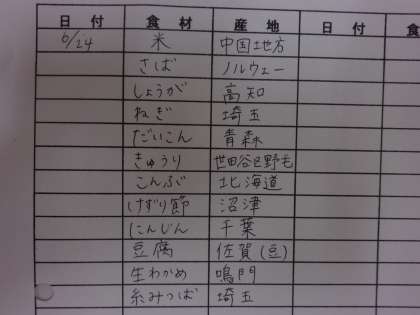 日付 食材 産地 日付 食
6/24 米 中国地方
さば ノルウェー
しょうが 高知
ねぎ 埼玉
だいこん 青森
きゅうり 世田谷区野毛
こんぶ 北海道
けずり節 沼津
にんじん 千葉
豆腐 佐賀(豆)
生わかめ 鳴門
糸みつば 埼玉